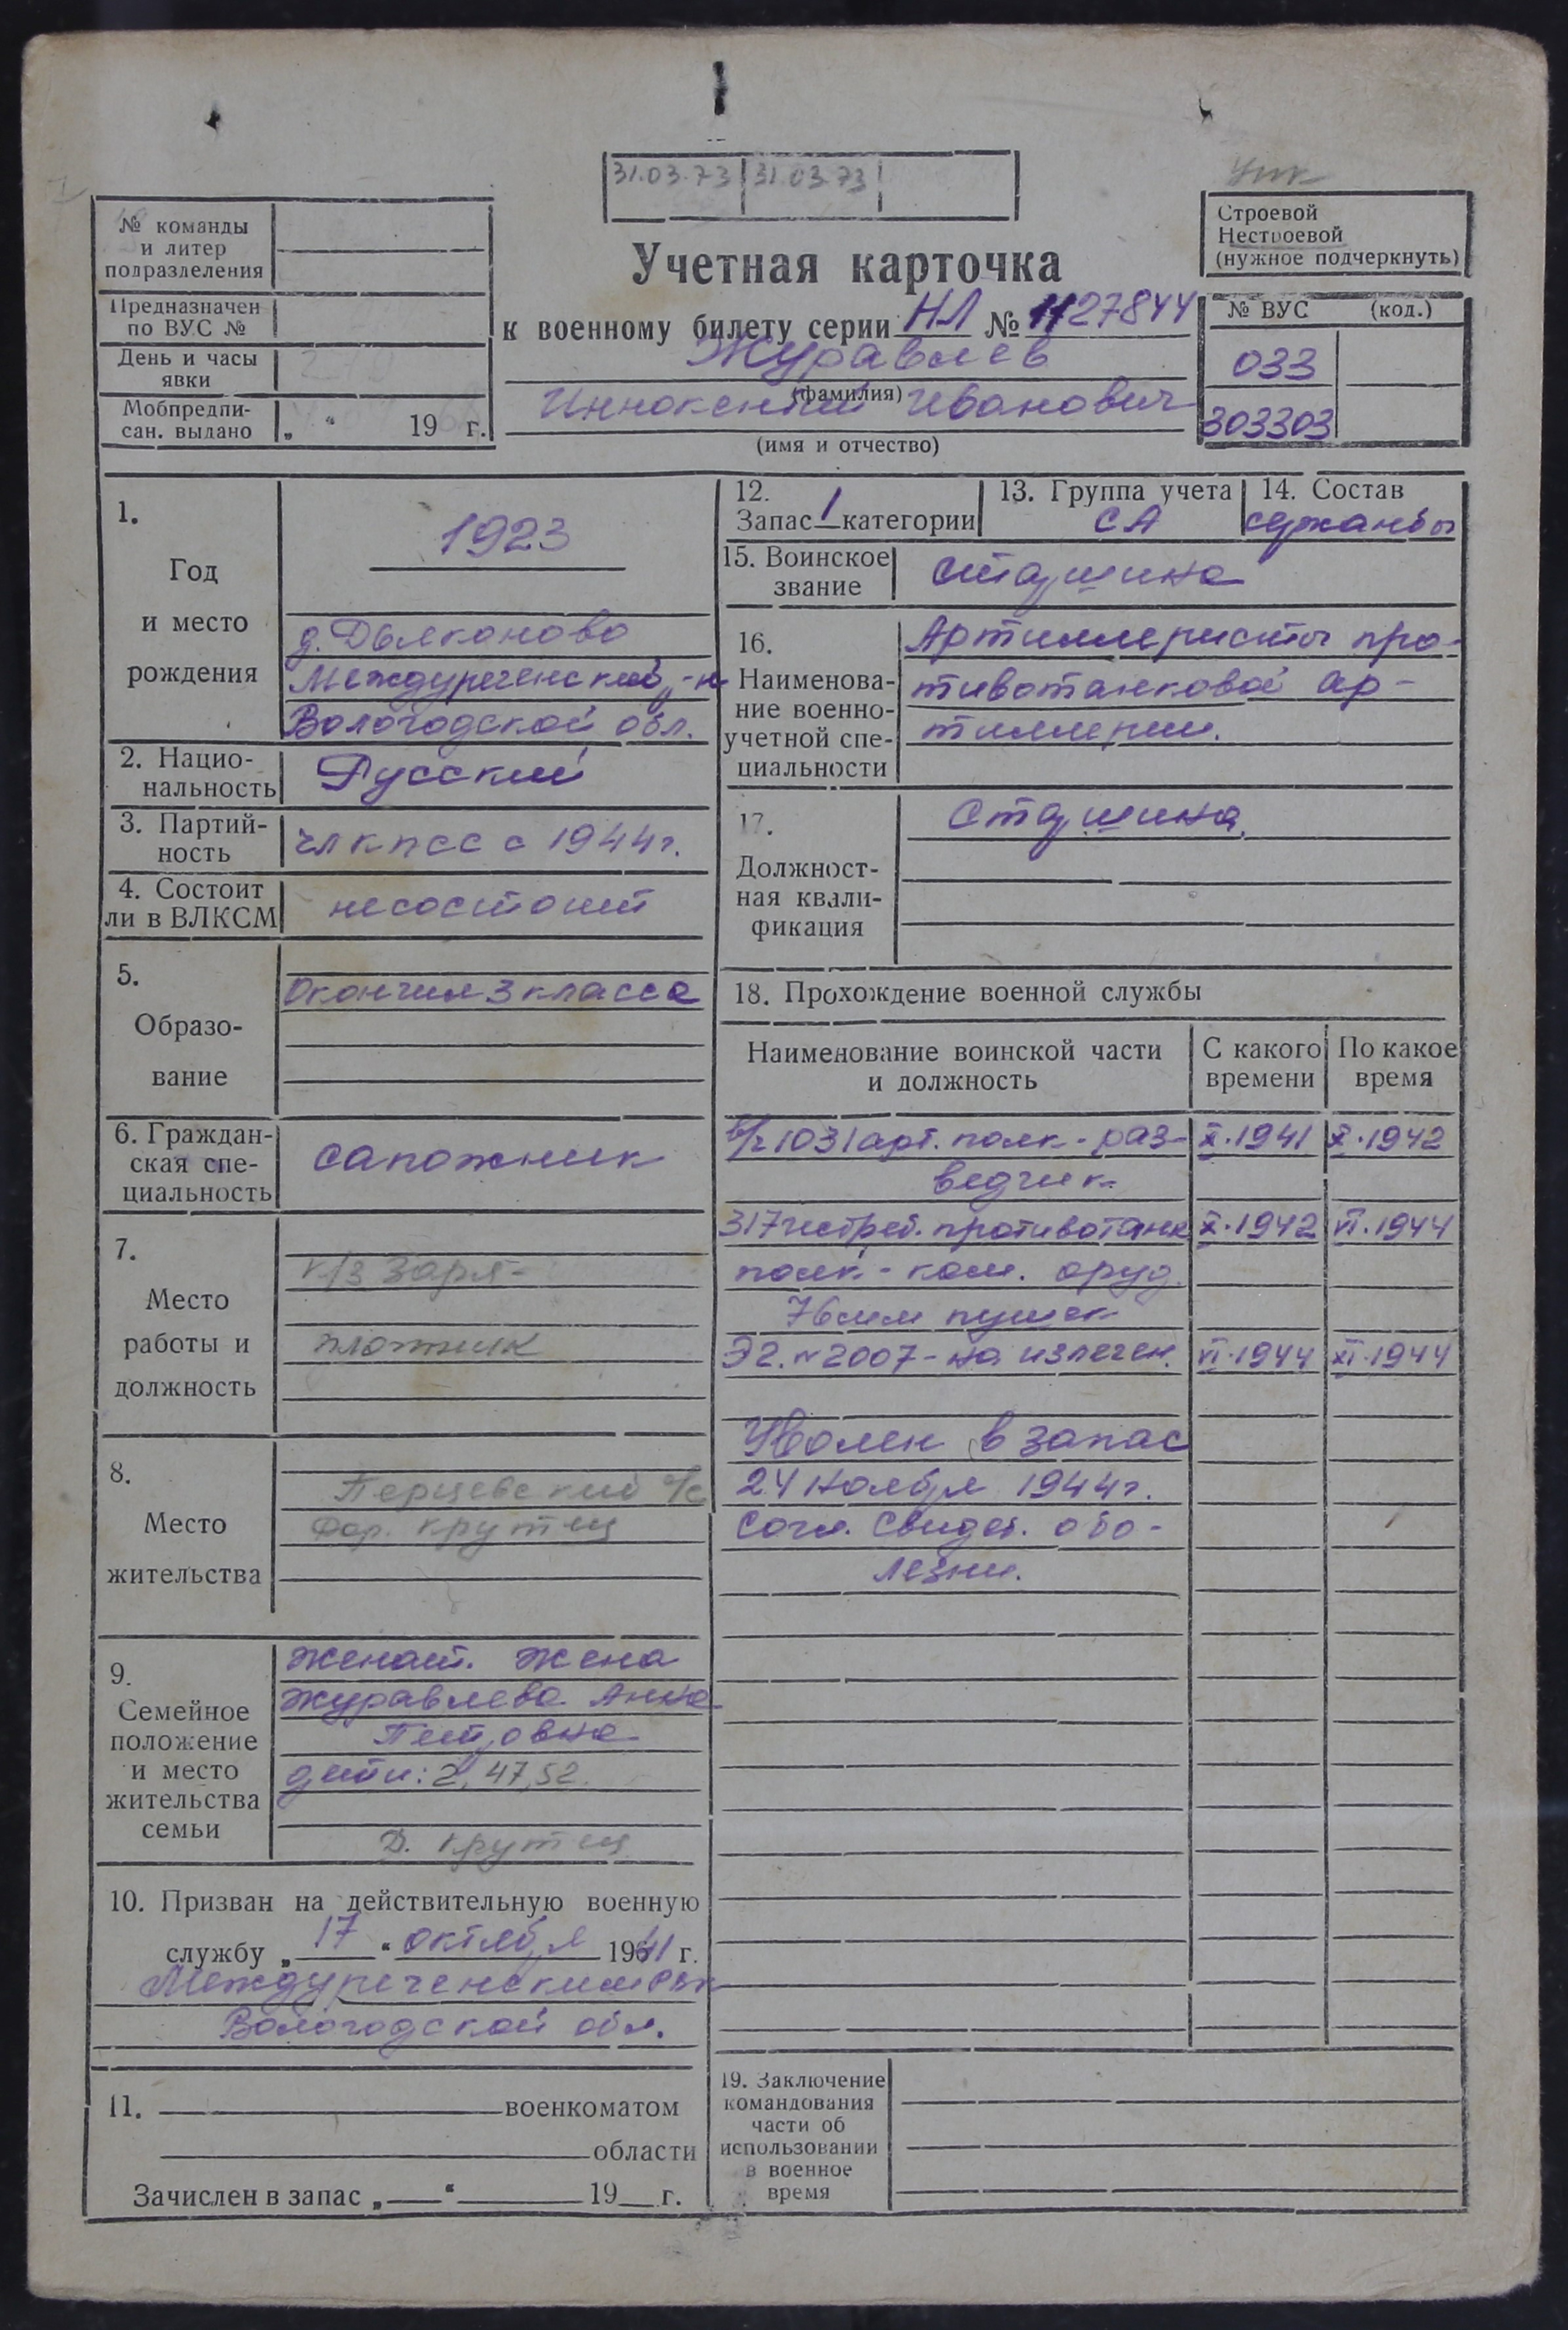 31.03.73 31.03.73
№ команды
и литер
подразделения
Предназначен
по ВУС №
День и часы
явки
Мобпредпи-
сан. выдано „ “ 19 г.
Учетная карточка
к военному билету серии НЛ № 1127844
Журавлев
(фамилия)
Иннокентий Иванович
(имя и отчество)
Строевой
Нестроевой
(нужное подчеркнуть)
№ ВУС (код.)
033
303303
1.
Год
и место
рождения
1923
д. Дьяконово
Междуреченский р-н
Вологодской обл.
2. Нацио-
нальность
Русский
3. Партий-
ность
чл КПСС с 1944г.
4. Состоит
ли в ВЛКСМ
не состоит
5.
Образо-
вание
Окончил 3 класса
6. Граждан-
ская спе-
циальность
сапожник
7.
Место
работы и
должность
к/з Заря-
плотник
8.
Место
жительства
Перцевский с/с
дер. Крутец
9.
Семейное
положение
и место
жительства
семьи
женат. Жена
Журавлева Анна
Петровна
дети: 2, 47, 52.
д. Крутец
10. Призван на действительную военную
службу „17“ октября 1941 г.
Междуреченским РВК
Вологодской обл.
11. военкоматом
области
Зачислен в запас „ “ 19 г.
12.
Запас 1 категории
13. Группа учета
СА
14. Состав
сержанты
15. Воинское
звание
старшина
16.
Наименова-
ние военно-
учетной спе-
циальности
Артиллеристы про-
тивотанковой ар-
тиллерии.
17.
Должност-
ная квали-
фикация
Старшина
18. Прохождение военной службы
Наименование воинской части
и должность
С какого
времени
По какое
время
в/ч 1031 арт. полк - раз- X.1941 X.1942
ведчик
317 истреб. противотанк X.1942 VI.1944
полк - ком. оруд.
76 мм пушек
ЭГ. №2007 - на излечен. VI.1944 XI.1944
Уволен в запас
24 ноября 1944г.
согл. свидет. о бо-
лезни.
19. Заключение
командования
части об
использовании
в военное
время